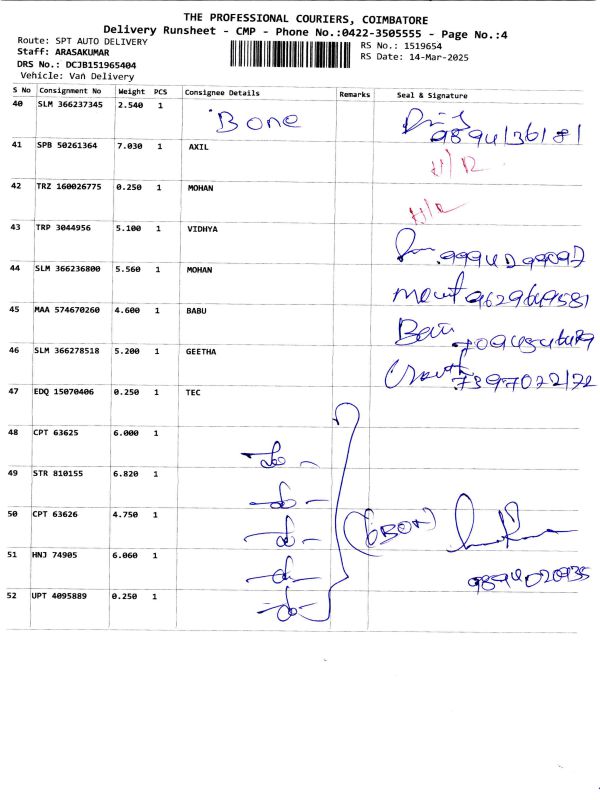 THE PROFESSIONAL COURIERS, COIMBATORE
Delivery Runsheet - CMP - Phone No.:0422-3505555 - Page No.:4
Route: SPT AUTO DELIVERY
RS No.: 1519654
Staff: ARASAKUMAR
RS Date: 14-Mar-2025
DRS No.: DCJB151965404
Vehicle: Van Delivery
S No Consignment No Weight PCS Consignee Details Remarks Seal & Signature
40 SLM 366237345 2.540 1 Bone 9894136181
41 SPB 50261364 7.030 1 AXIL H/R
42 TRZ 160026775 0.250 1 MOHAN H/R
43 TRP 3044956 5.100 1 VIDHYA
44 SLM 366236800 5.560 1 MOHAN
45 MAA 574670260 4.600 1 BABU
46 SLM 366278518 5.200 1 GEETHA
47 EDQ 15070406 0.250 1 TEC
48 CPT 63625 6.000 1 -do-
49 STR 810155 6.820 1 -do-
50 CPT 63626 4.750 1 -do-
51 HNJ 74905 6.060 1 -do-
52 UPT 4095889 0.250 1 -do-